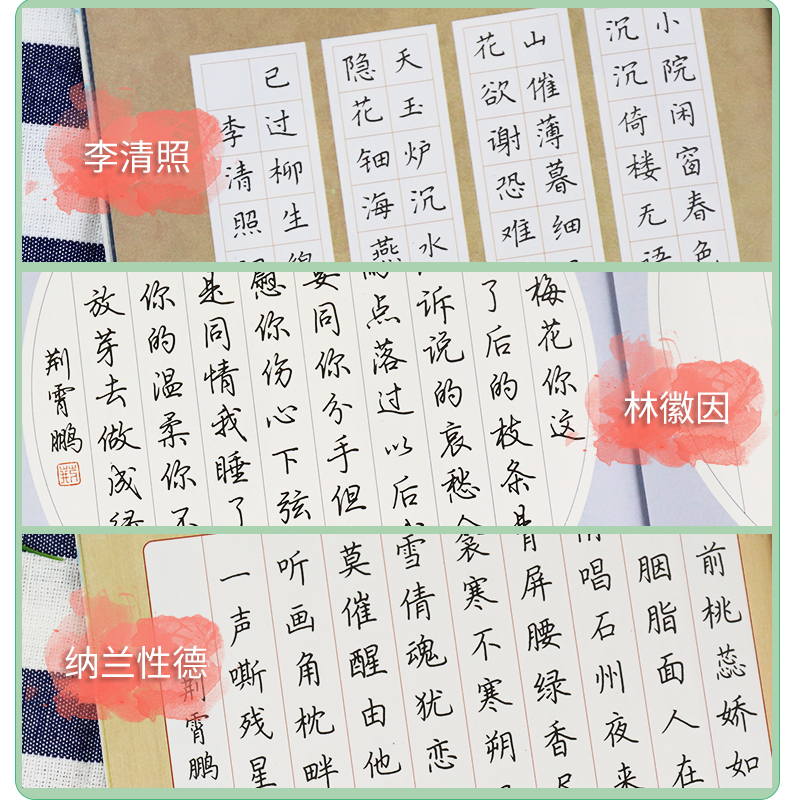 李清照
小院闲窗春色
沉沉倚楼无语
山催薄暮细
花欲谢恐难
天玉炉沉水
隐花钿海燕
已过柳生
李清照
林徽因
梅花你这
了后的枝条
诉说的哀愁
点落过以后
同你分手但
慰你伤心下弦
是同情我睡了
你的温柔你不
放芽去做成
荆霄鹏
纳兰性德
前桃蕊娇如
胭脂面人在
唱石州夜来
屏腰绿香
衾寒不寒朔
雪倩魂犹恋
莫催醒由他
听画角枕畔
一声嘶残星
荆霄鹏